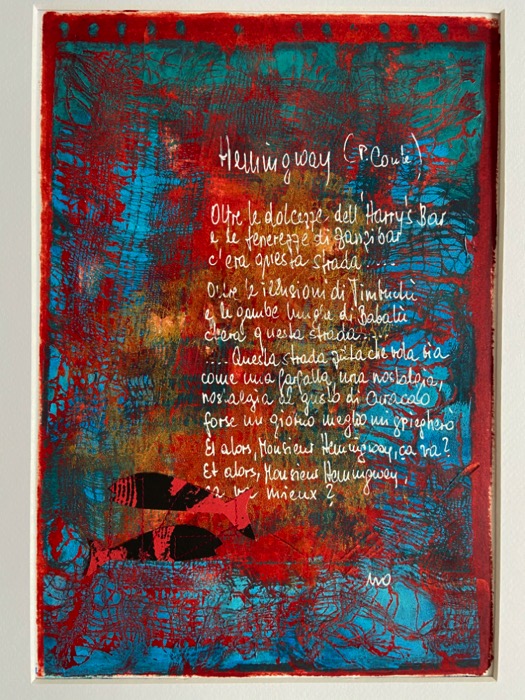 Hemingway (P. Conte)
Oltre le dolcezze dell'Harry's Bar
e le tenerezze di Zanzibar
c'era questa strada.....
Oltre le illusioni di Timbuctù
e le gambe lunghe di Babalù
c'era questa strada.....
....Questa strada zitta che vola via
come una farfalla, una nostalgia,
nostalgia al gusto di Curaçao
forse un giorno meglio mi spiegherò
Et alors, Monsieur Hemingway, ça va?
Et alors, Monsieur Hemingway,
ça va mieux?